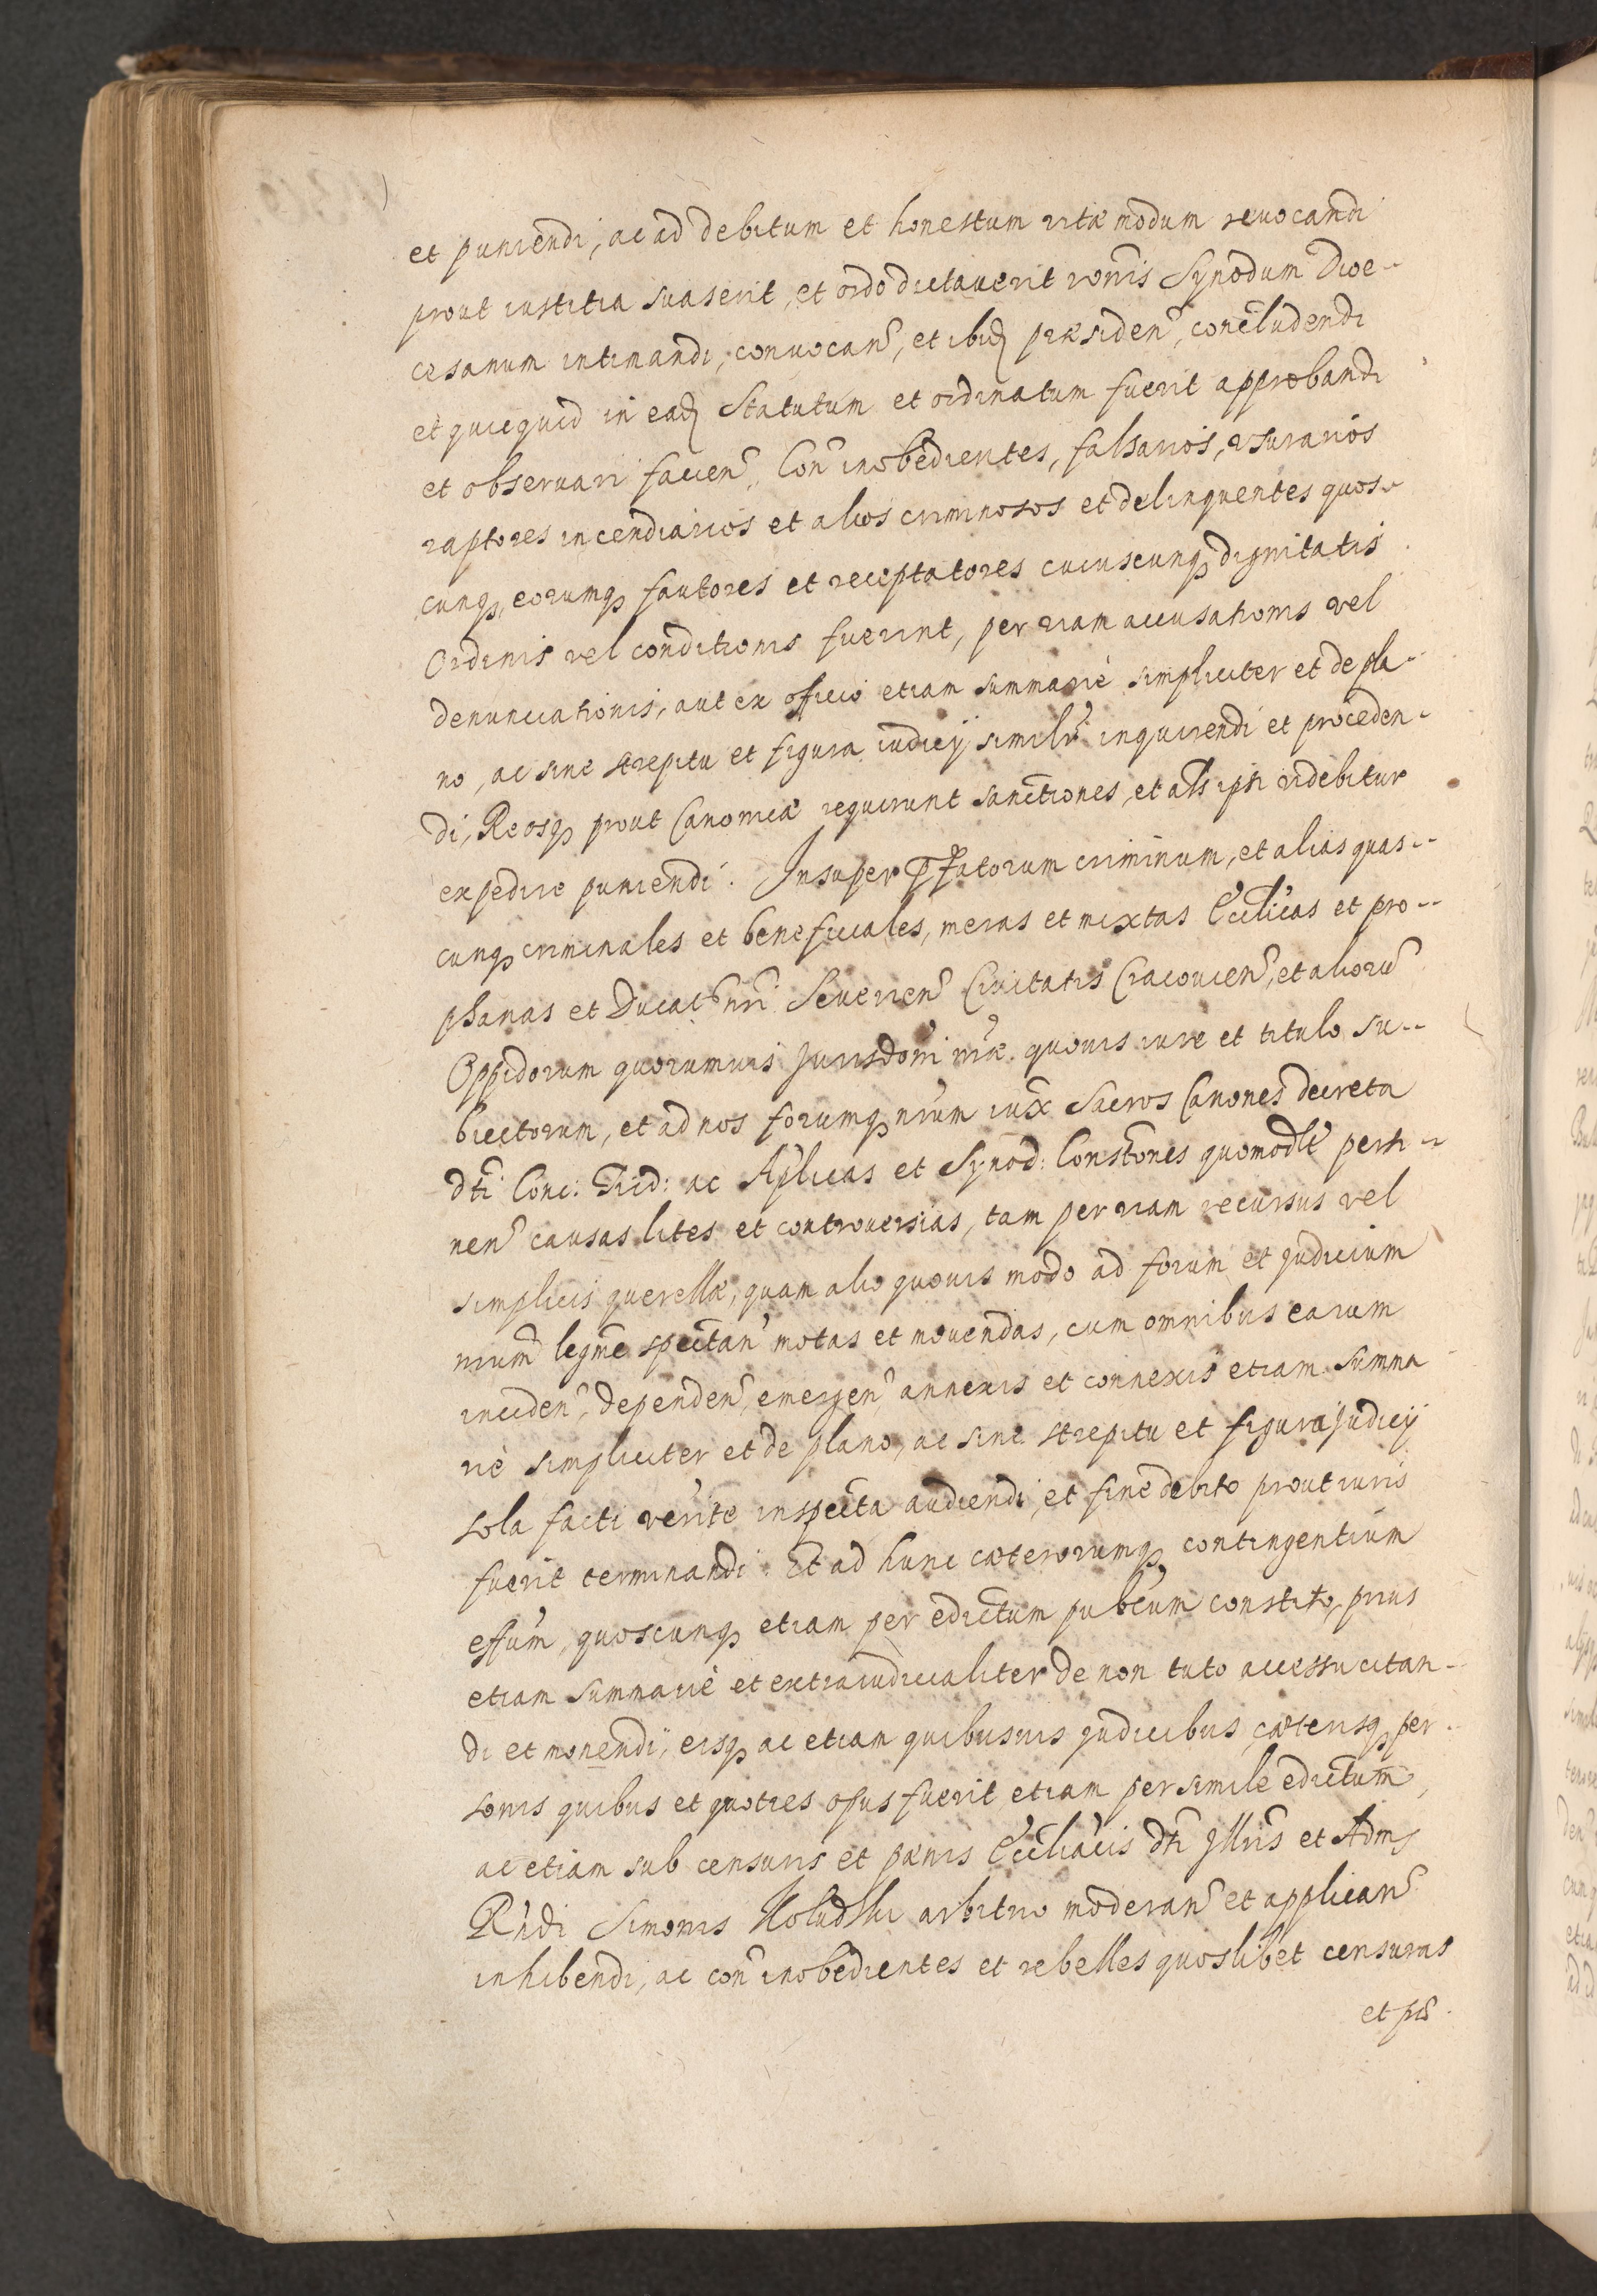 et puniendi, ac ad debitum et honestum vitæ modum revocandi
prout iustitia suaserit, et ordo dictaverit rõnis Synodum Dioe-
cesanum intimandi, convocan̄, et ibiđ præsiden̄, concludendi
et quicquid in eađ Statutum et ordinatum fuerit approbandi
et observari facien̄, Con̄ inobedientes, falsarios, usurarios
raptores incendiarios et alios criminosos et delinquentes quos-
cunq, eorumq fautores et receptatores cuiuscunq dignitatis
Ordinis vel conditionis fuerint, per viam accusationis vel
denunciationis, aut ex officio etiam summariè simpliciter et de pla-
no, ac sine strepitu et figura iudicij similr̃ inquirendi et proceden-
di, Reosq prout Canonicæ requirunt sanctiones, et als ipsi videbitur
expedire puniendi. Insuper p̃fatorum criminum, et alias quas-
cunq criminales et beneficiales, meras et mixtas Ecclicas et pro-
phanas et Ducat⁹ nr̃i Severien̄ Civitatis Cracovien̄, et aliorũ
Oppidorum quorumvis Jurisdõni nr̃æ quovis iure et titulo su-
biectorum, et ad nos forumq nr̃um iux̃ Sacros Canones decreta
dti Conc: Trid: ac Aplicas et Synod: Constõnes quomodlt̃ perti-
nen̄ causas lites et controversias, tam per viam recursus vel
simplicis querellæ, quam alio quovis modo ad forum et judicium
nr̃um legm̃e spectan̄ motas et movendas, cum omnibus earum
inciden̄, dependen̄, emergen̄, annexis et connexis etiam summa
riè simpliciter et de plano, ac sine strepitu et figura Judicij
sola facti verit̃e inspecta audiendi, et fine debito prout iuris
fuerit terminandi. Et ad hunc cæterorumq contingentium
effum, quoscunq etiam per edictum publcum constito, prius
etiam summariè et extraiudicialiter de non tuto accessu citan-
di et monendi, eisq ac etiam quibusvis judicibus cæterisq per-
sonis quibus et quoties opus fuerit etiam per simile edictum,
ac etiam sub censuris et pænis Eccliacis dti Jllris et Adm
Rñdi Simonis Kołudzki arbitrio moderan̄ et applican̄
inhibendi, ac con̄ inobedientes et rebelles quoslibet censuras